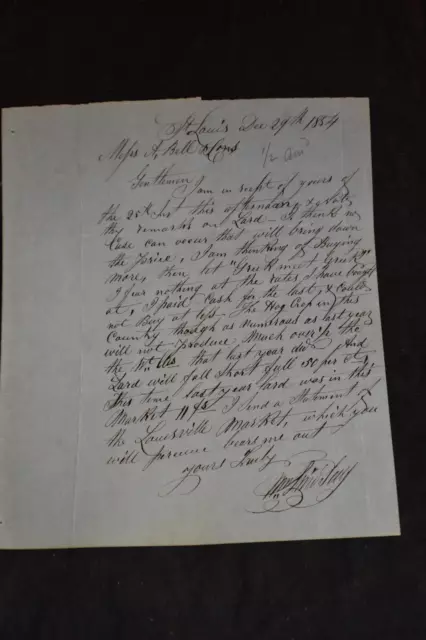 St Louis Dec 29th 1854
Messrs A. Bell & Sons
1/2 an
Gentlemen I am in rec'pt of yours of
the 25th inst this afternoon, & note
thy remarks on Lard - I think no
Case can occur that will bring down
the Price, I am thinking of Buying
more, then let "Greek meet Greek" &
I fear nothing at the rates I have bought
at, I paid cash for the last, & could
not Buy at less - The Hog Crop in this
Country though as numerous as last year
will not Produce Much over ⅔ the
the Wt lbs that last year did And
Lard will fall short full 50 per ct
This time last year Lard was in this
Market I send a Statement of
the Louisville Market, which you
will perceive bears me out
yours Truly
Wm